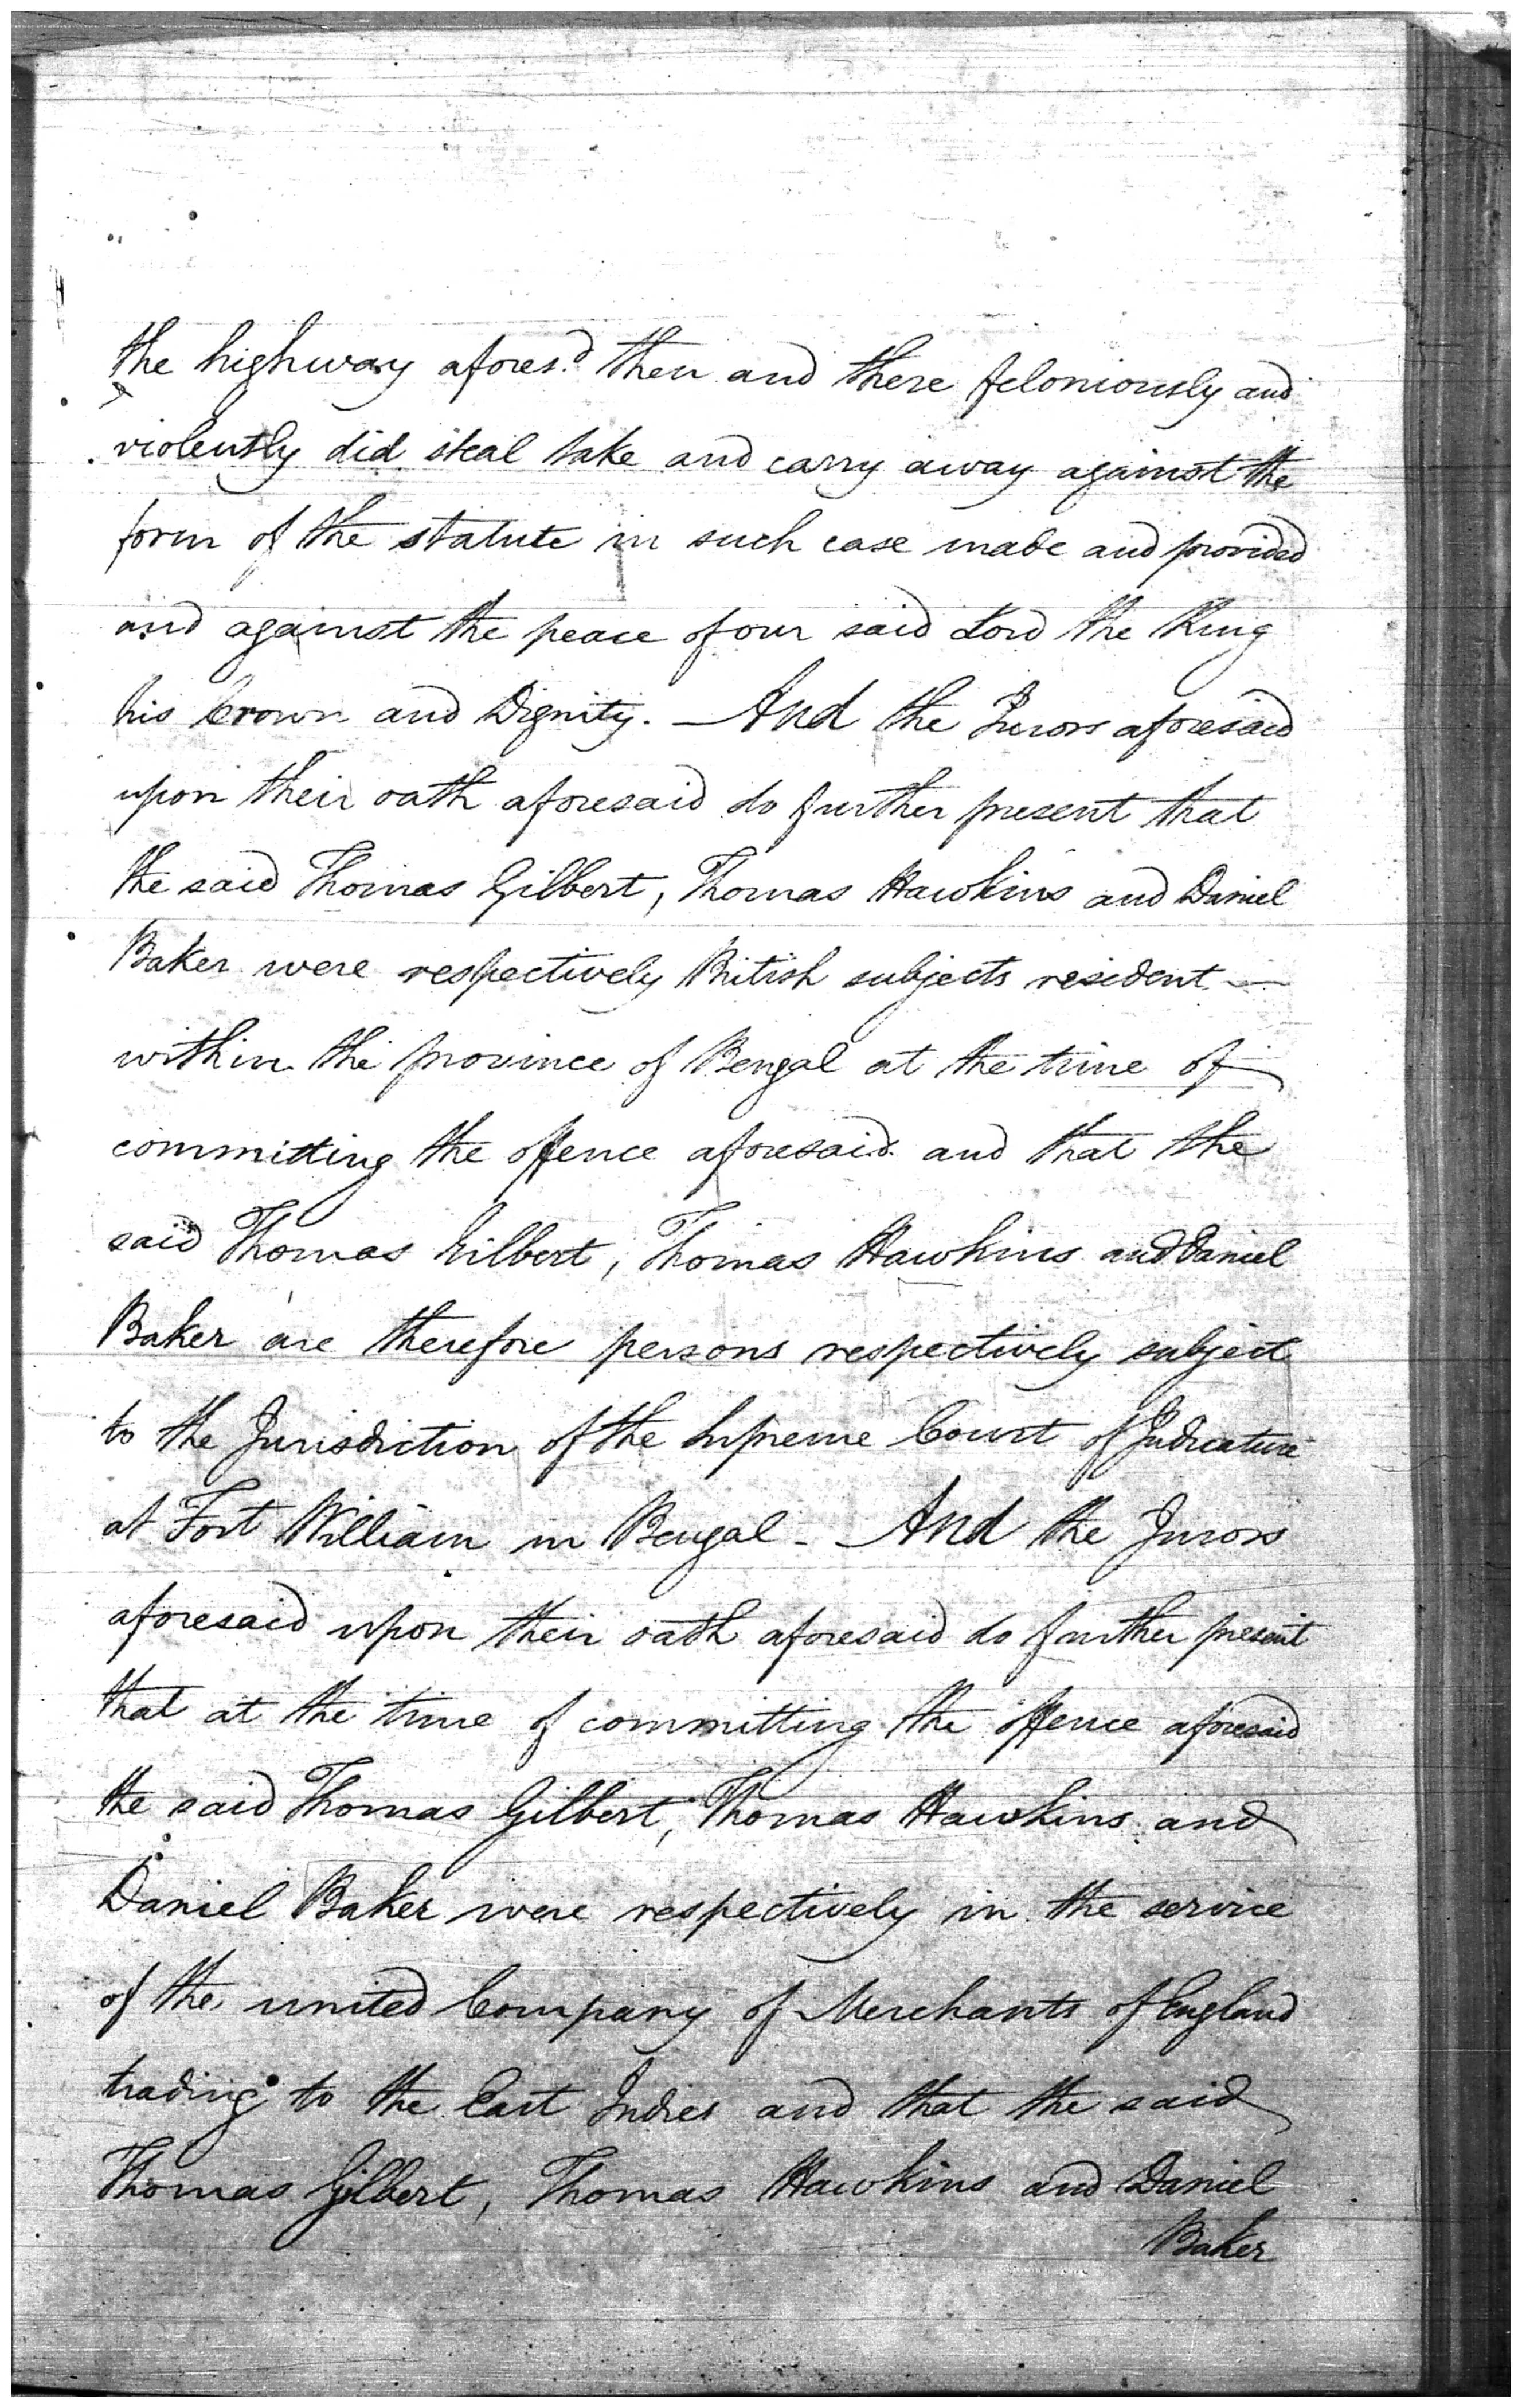 the highway afores.d then and there feloniously and
violently did steal take and carry away against the
form of the statute in such case made and provided
and against the peace of our said Lord the King
his Crown and Dignity. — And the Jurors aforesaid
upon their oath aforesaid do further present that
the said Thomas Gilbert, Thomas Hawkins and Daniel
Baker were respectively British subjects resident —
within the province of Bengal at the time of
committing the offence aforesaid and that the
said Thomas Gilbert, Thomas Hawkins and Daniel
Baker are therefore persons respectively subject
to the Jurisdiction of the Supreme Court of Judicature
at Fort William in Bengal - And the Jurors
aforesaid upon their oath aforesaid do further present
that at the time of committing the offence aforesaid
the said Thomas Gilbert, Thomas Hawkins and
Daniel Baker were respectively in the service
of the united Company of Merchants of England
trading to the East Indies and that the said
Thomas Gilbert, Thomas Hawkins and Daniel
Baker